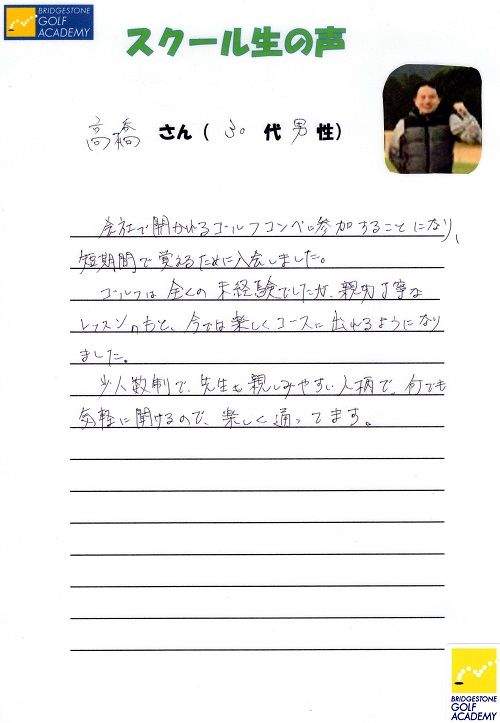 BRIDGESTONE
GOLF
ACADEMY
スクール生の声
高橋 さん ( 30 代 男 性)
会社で開かれるゴルフコンペに参加することになり、
短期間で覚えるために入会しました。
ゴルフは全くの未経験でしたが、親切丁寧な
レッスンのもと、今では楽しくコースに出れるようになり
ました。
少人数制で、先生も親しみやすい人柄で、何でも
気軽に聞けるので、楽しく通ってます。
BRIDGESTONE
GOLF
ACADEMY